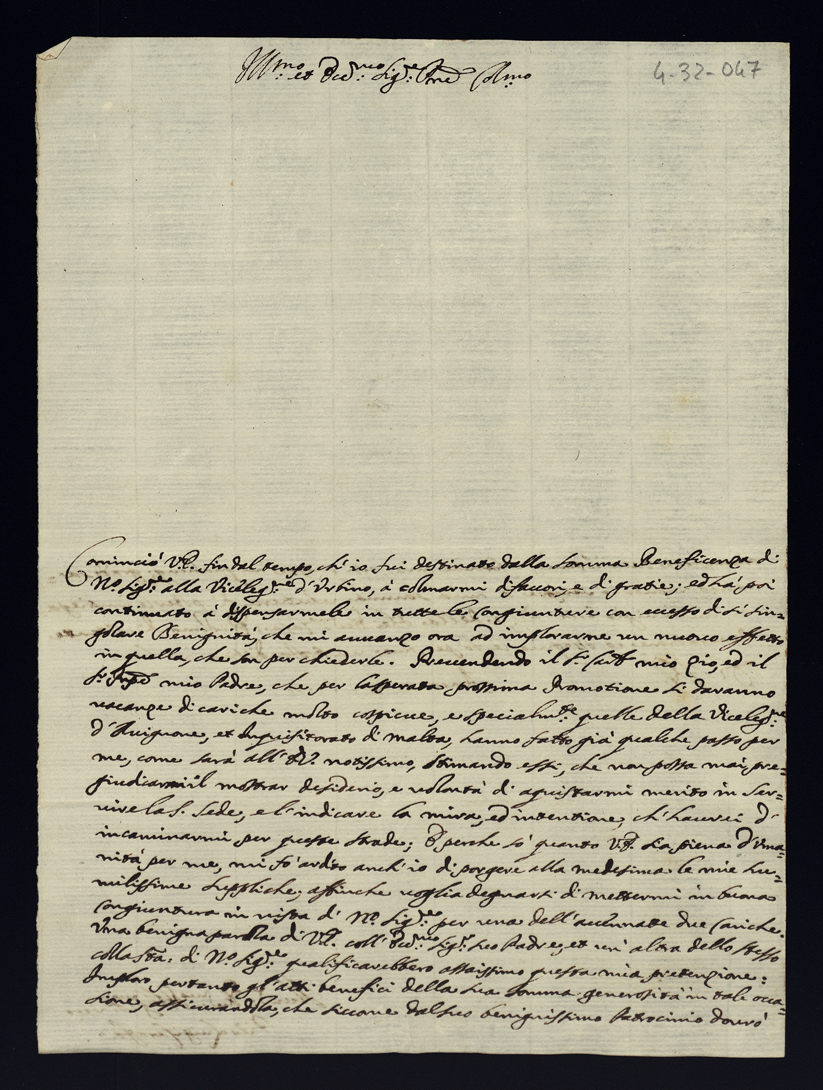 Ill.mo et Ecc.mo Sig.re P.rne Col.mo
4-32-047
Cominciò V.E. sin dal tempo, ch' io fui destinato dalla somma Beneficenza di
N.o Sig.re alla Viceleg.ne d' Urbino, à colmarmi di favori, e di gratie; ed hà poi
continuato à dispensarmele in tutte le congiunture con eccesso di sì sin=
golare Benignità, che mi avvanzo ora ad implorarne un nuovo effetto
in quella, che son per chiederle. Prevedendo il S.r Card. mio Zio, ed il
S.r mio Padre, che per la sperata prossima Promotione si daranno
vacanze di cariche molto cospicue, e specialm.te quelle della Viceleg.ne
d' Avignone, et Inquisitorato di Malta, hanno fatto già qualche passo per
me, come sarà all' E.V. notissimo, stimando essi, che non possa mai pre=
giudicarmi il mostrar desiderio, e volontà di aquistarmi merito in ser=
vire la S. Sede, e l' indicare la mira, ed intentione, ch' haverei d'
incaminarmi per queste strade; E perche sò quanto V.E. sia piena d' Uma=
nità per me, mi fò ardito anch' io di porgere alla medesima le mie hu=
milissime suppliche, affinche voglia degnarsi di mettermi in buona
congiuntura in vista di N.o Sig.re per una dell' accennate due Cariche.
Una benigna parola di V.E. coll' Ecc.mo Sig.r suo Padre, et un' altra dello stesso
colla S.tà di N.o Sig.re qualificarebbero assaissimo questa mia pretenzione:
Imploro pertanto gl' atti benefici della sua somma generosità in tale occa=
sione, assicurandola, che siccome dal suo benignissimo Patrocinio dovrò